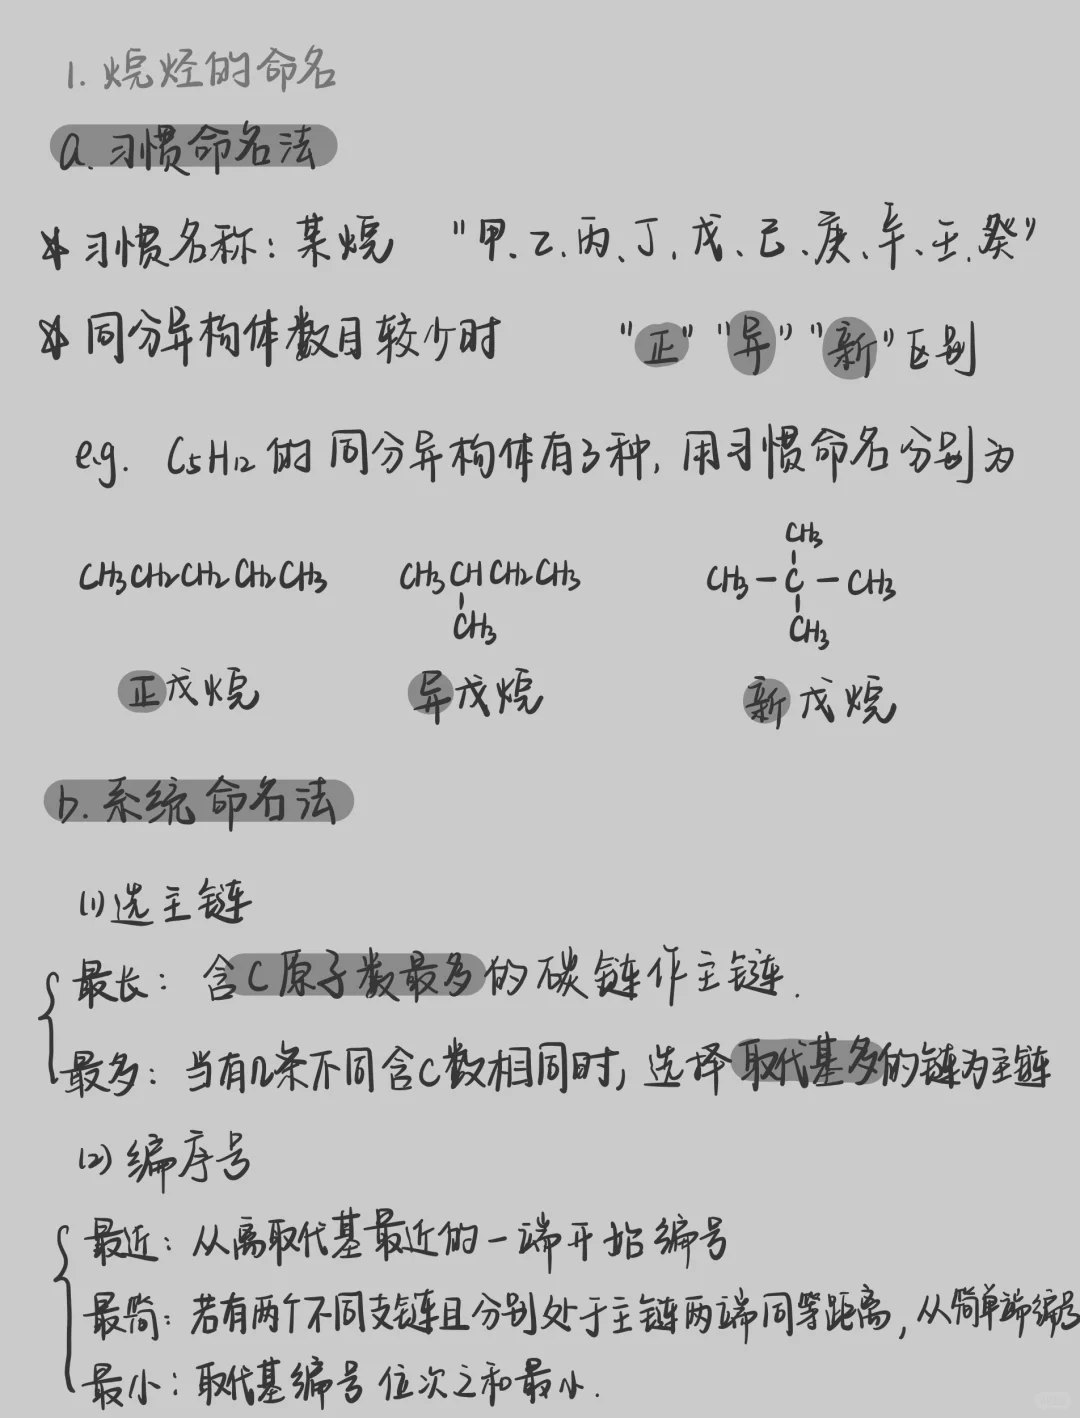 1. 烷烃的命名
a. 习惯命名法
* 习惯名称：某烷 "甲、乙、丙、丁、戊、己、庚、辛、壬、癸"
* 同分异构体数目较少时 "正" "异" "新" 区别
e.g. C5H12的同分异构体有3种，用习惯命名分别为
CH3
CH3CH2CH2CH2CH3 CH3CHCH2CH3 CH3-C-CH3
CH3 CH3
正戊烷 异戊烷 新戊烷
b. 系统命名法
(1) 选主链
最长：含C原子数最多的碳链作主链.
最多：当有几条不同含C数相同时，选择取代基多的链为主链
(2) 编序号
最近：从离取代基最近的一端开始编号
最简：若有两个不同支链且分别处于主链两端同等距离，从简单端编号
最小：取代基编号位次之和最小.